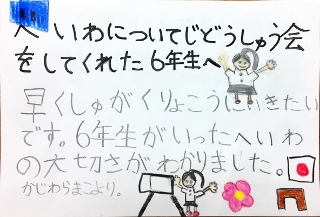 へいわについてじどうしゅう会
をしてくれた6年生へ
早くしゅがくりょこうにいきたい
です。6年生がいったへいわ
の大切さがわかりました。
かじわらまこより。